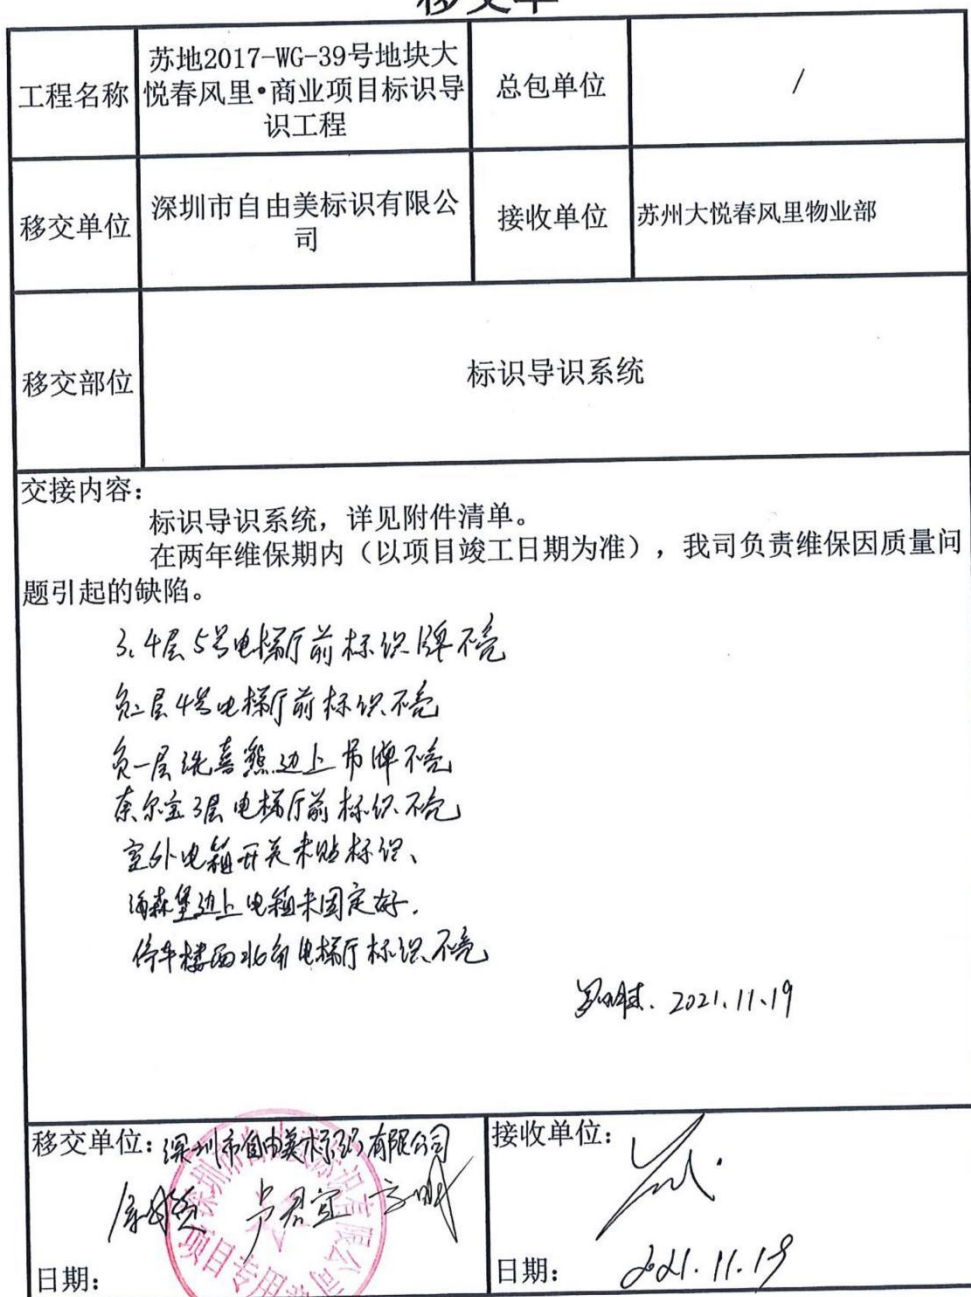 移交单
工程名称
苏地2017-WG-39号地块大
悦春风里•商业项目标识导
识工程
总包单位
/
移交单位
深圳市自由美标识有限公
司
接收单位
苏州大悦春风里物业部
移交部位
标识导识系统
交接内容：
标识导识系统，详见附件清单。
在两年维保期内（以项目竣工日期为准），我司负责维保因质量问
题引起的缺陷。
3.4层5号电梯厅前标识牌不亮
负二层4号电梯厅前标识不亮
负一层洗喜熊边上吊牌不亮
奈尔宝3层电梯厅前标识不亮
室外电箱开关未贴标识、
海森堡边上电箱未固定好.
停车楼西北角电梯厅标识不亮
2021.11.19
移交单位：深圳市自由美标识有限公司
卢君宜
日期：
接收单位：
日期：
2021.11.19